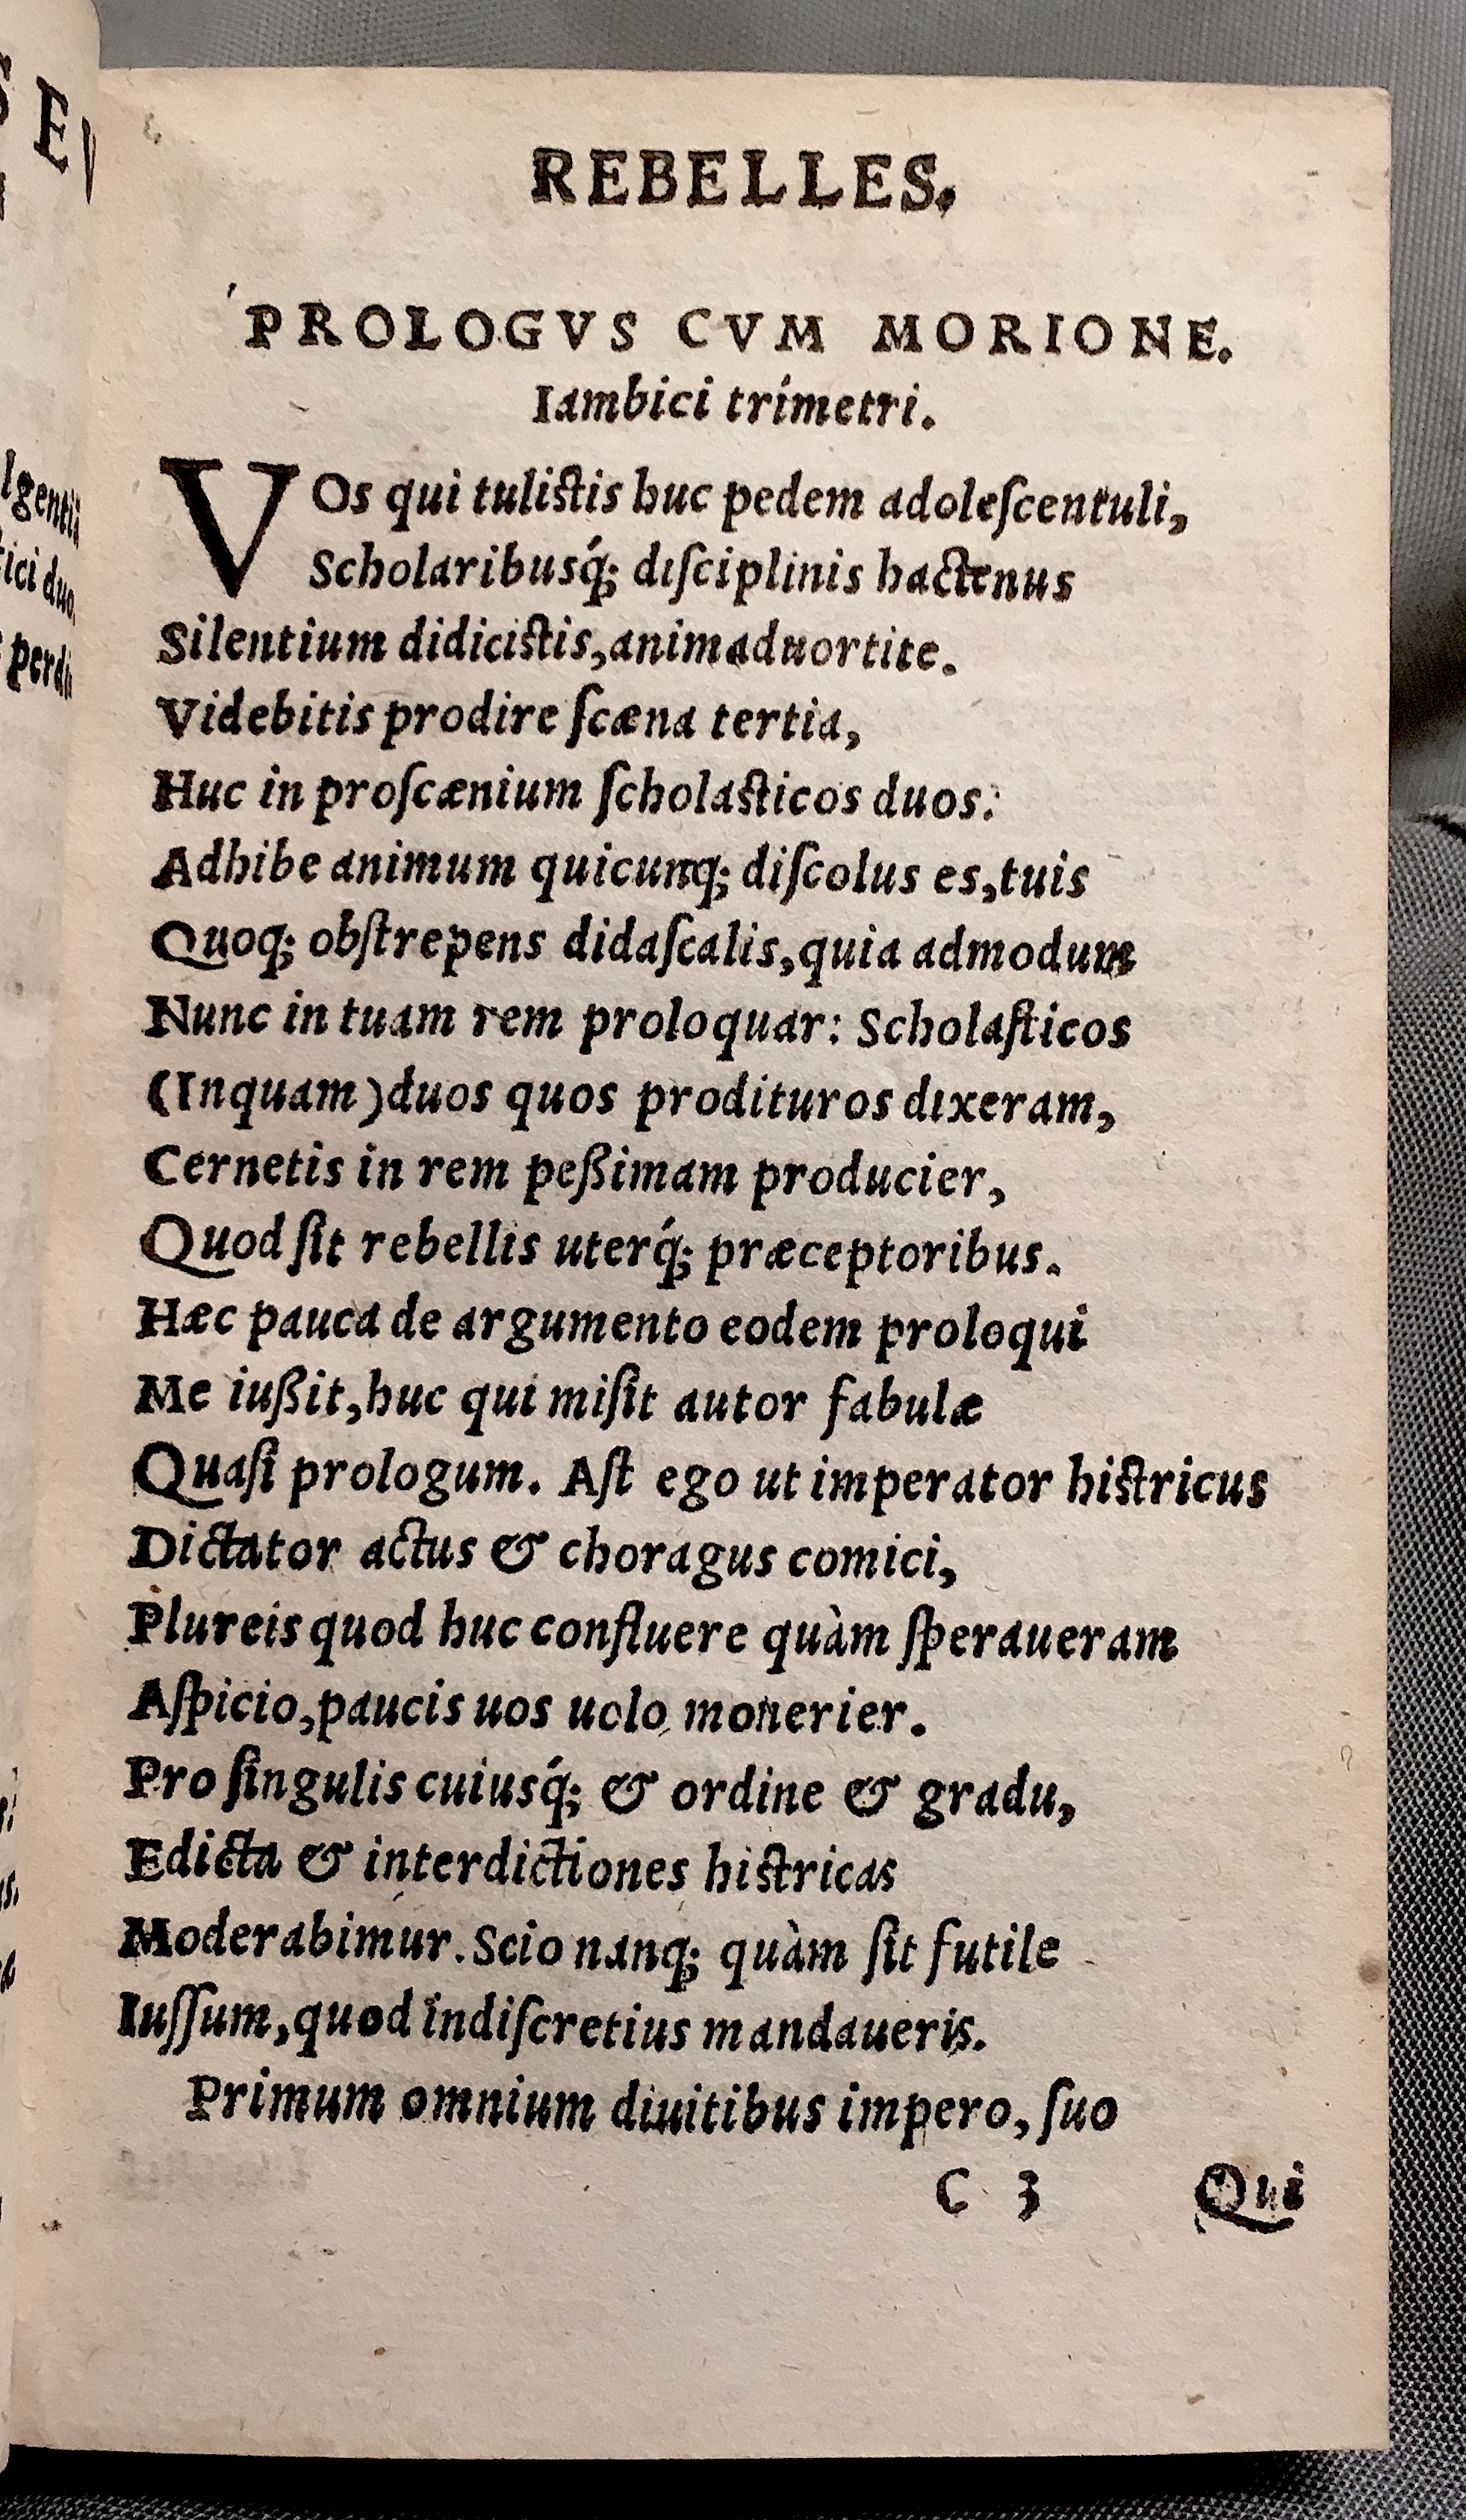 REBELLES.
PROLOGVS CVM MORIONE.
Iambici trímetri.
VOs qui tulistis huc pedem adoleſcentuli,
Scholaribusq́; diſciplinis hactenus
Silentium didicistis,animaduortite.
Videbitis prodire ſcæna tertia,
Huc in proſcænium ſcholasticos duos:
Adhibe animum quicunq; diſcolus es,tuis
Quoq; obſtrepens didaſcalis,quia admodum
Nunc in tuam rem proloquar: Scholaſticos
(Inquam)duos quos prodituros dixeram,
Cernetis in rem peßimam producier,
Quod ſit rebellis uterq́; præceptoribus.
Hæc pauca de argumento eodem proloqui
Me iußit,huc qui miſit autor fabulæ
Quaſi prologum. Aſt ego ut imperator histricus
Dictator actus & choragus comici,
Plureis quod huc confluere quàm ſperaueram
Aſpicio,paucis uos uolo monerier.
Pro ſingulis cuiusq́; & ordine & gradu,
Edicta & interdictiones histricas
Moderabimur.Scio nanq; quàm ſit futile
Iuſſum,quod indiſcretius mandaueris.
Primum omnium diuitibus impero, ſuo
C 3 Qui
lgentia
ici duo,
perdi